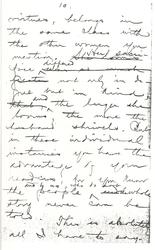 10.
virtues, belongs in
the same class with
the other women you
mention,
not only in de
gree but in kind
the larger she
looms, the more the
husband shrivels. But
in these individual
instances you have the
advantage of your
readers, for you know
the people
story never can be
told. This is absolutely
all I have to say.